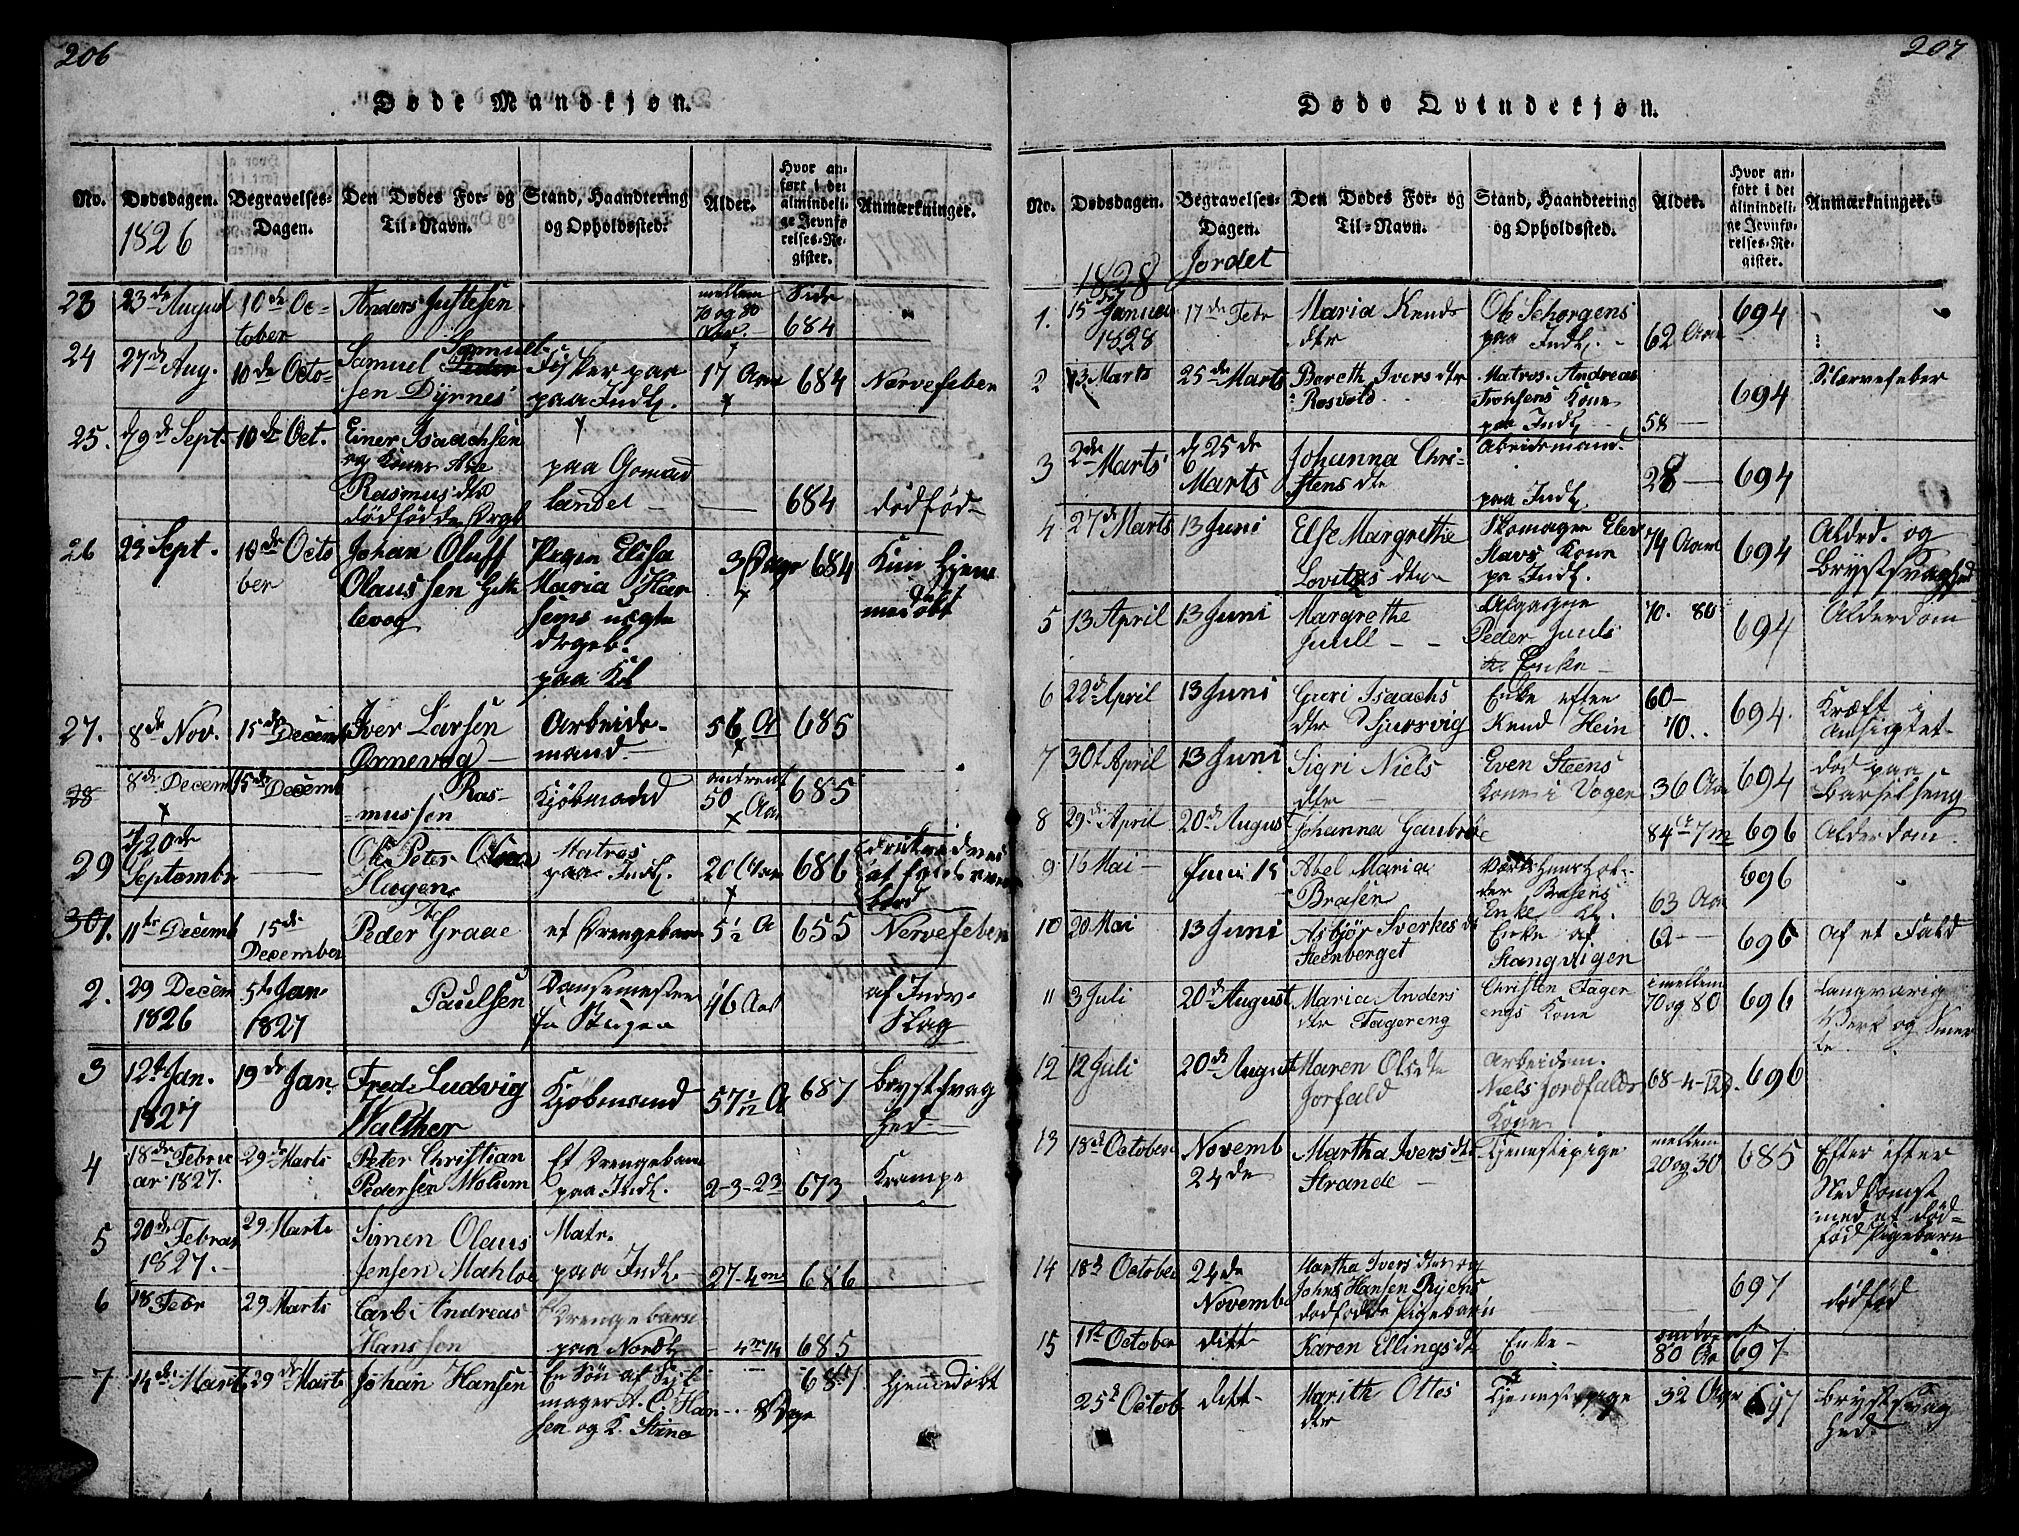 206
Døde Mandkjøn.
No.
Dødsdagen.
1826
Begravelses-
Dagen.
Den Dødes For- og
Til-Navn.
Stand, Haandtering
og Opholdssted.
Alder.
Hvor an-
ført i det
almindeli-
ge Jevnfø-
relses-Re-
gister.
Anmærkninger.
23
23de August
10de Oc-
tober
Anders Justesen
mellem
70 og 80
Aar
Side
684
24
27de Aug.
10de Octo-
ber
Samuel Samuel-
sen Dyrnes
Fisker paa
paa Indl.
17 Aar
684
Nervefeber
25.
d 9de Sept.
10de Oct.
Einer Isaachsen
og Kones Ane
Rasmusdtr
dödfödde Drgb
paa Gomal
landet
684
dödfød-
26
23 Sept.
10de Octo
ber
Johan Oluff
Olaussen
levog
Pigen Elisa
Maria
sems uægte
drgeb.
paa Kl
3 Dage
684
Kun hjem
medöbt
27.
8de Nov.
15de Decemb
Iver Larsen
Ornevog
Arbeids-
mand
56 A
685
28
8de Decemb
15de Decemb
Ras-
mussen
Kjöbmand
omtrent
50 Aar
685
29
d 20de
Septembr
Ole Peter Olsen
Hagen
Matros
paa Indl.
20 Aar
686
bord
30 1.
11te Decemb
15de
December
Peder Graae
et Drengebarn
5 1/2 A
655
Nervefeber
2.
29 Decem
1826
5te Jan.
1827
Paulsen
Dansemester
46 Aar
af
Slag
3
12te Jan.
1827
19de Jan.
Fred. Ludvig
Walther
Kjöbmand
57 1/12 A
687
Brystsvag
hed
4
18de Febru
ar 1827.
29de Marts
Peter Christian
Pedersen Molum
Et Drengebarn
paa Indl.
2-3-23
673
Krampe
5
20de Februar
1827.
29 Marts
Simen Olaus
Jensen Mahloe
Matr.
paa Indl.
27-4m
686
6
18 Febr
29 Marts
Carl Andreas
Hanssen
Drengebarn
paa Nordl.
4m 14
685
7
14de Marts
29de Marts
Johan Hansen
En Sön af
mager A. C. Han-
sen og K. Stina
8 Dage
687
Hjemmedöbt
207
Døde Qvindekjøn.
No.
Dødsdagen.
1828
Begravelses-
Dagen.
Jordet
Den Dødes For- og
Til-Navn.
Stand, Haandtering
og Opholdssted.
Alder.
Hvor an-
ført i det
almindeli-
ge Jevnfø-
relses-Re-
gister.
Anmærkninger.
1.
15de
Januar
1828
17de Febr
Maria Knuds
dtr
Ole Schorgens
paa Indl.
62 Aar
694
2
13 Marts
25de Marts
Bereth Ivers dtr
Rosvold
Matros Andreas
Tronsens Kone
paa Indl
58
694
3
2de Marts
d 25de
Marts
Johanna Chri-
stens dtr
Abeidsmand
paa Indl.
28
694
4
27de Marts
13 Juni
Else Margrethe
dtr
Skomager
Kone
pa Indl.
74 Aar
694
Alderd. og
Brystsvaghed
5
13 April
13 Juni
Margrethe
Juull
Peder Juuls
Enke
70. 80
694
Alderdom
6
22de April
13 Juni
Guri Isaachs
dtr Tjursvig
Enke efter
Knud Hein
60-
70..
694.
Kræft i
Ansigtet
7
30te April
13 Juni
Sigri Niels
dtr
Even Steens
Kone i Vogen
36 Aar
694
död paa
Barselseng
8
29de April
20de August
Johanna
84 - 7m
696
Alderdom
9
16 Mai
Juni 15
Abel Maria
Brasen
Værtshuushol-
der Brasens
Enke Kl.
63 Aar
696
10
20 Mai
13 Juni
Asbjör Sverkes d
Steenberget
Enke af
Stangvigen
62
695
af et Fald
11
3 Juli
20de August
Maria Anders
dtr Fagereng
Christen Fager
engs Kone
imellem
70 og 80
696
langvarig
Værk og Smer
te
12
12 Juli
20de August
Maren Olsdtr
Jorfald
Arbeidsm.
Niels Jordfalds
Kone
68-4-12d.
696
13
18de October
Novemb
24de
Martha Ivers dtr
Strande
Tjenestepige
mellem
20 og 30
685
Efter
Nedkomst
med et död-
föd Pigebarn
14
18de October
24de
Novemb
Martha Ivers dtr og
Johs Hansen
dødfödde Pigebarn
697
dödföd
15
11te October
ditt
Karen Ellings dtr
Enke
80 Aar
697
25de Octob
ditt
Marith Ottes
dtr
Tjenestepige
32 Aar
697
Brystsvag
hed